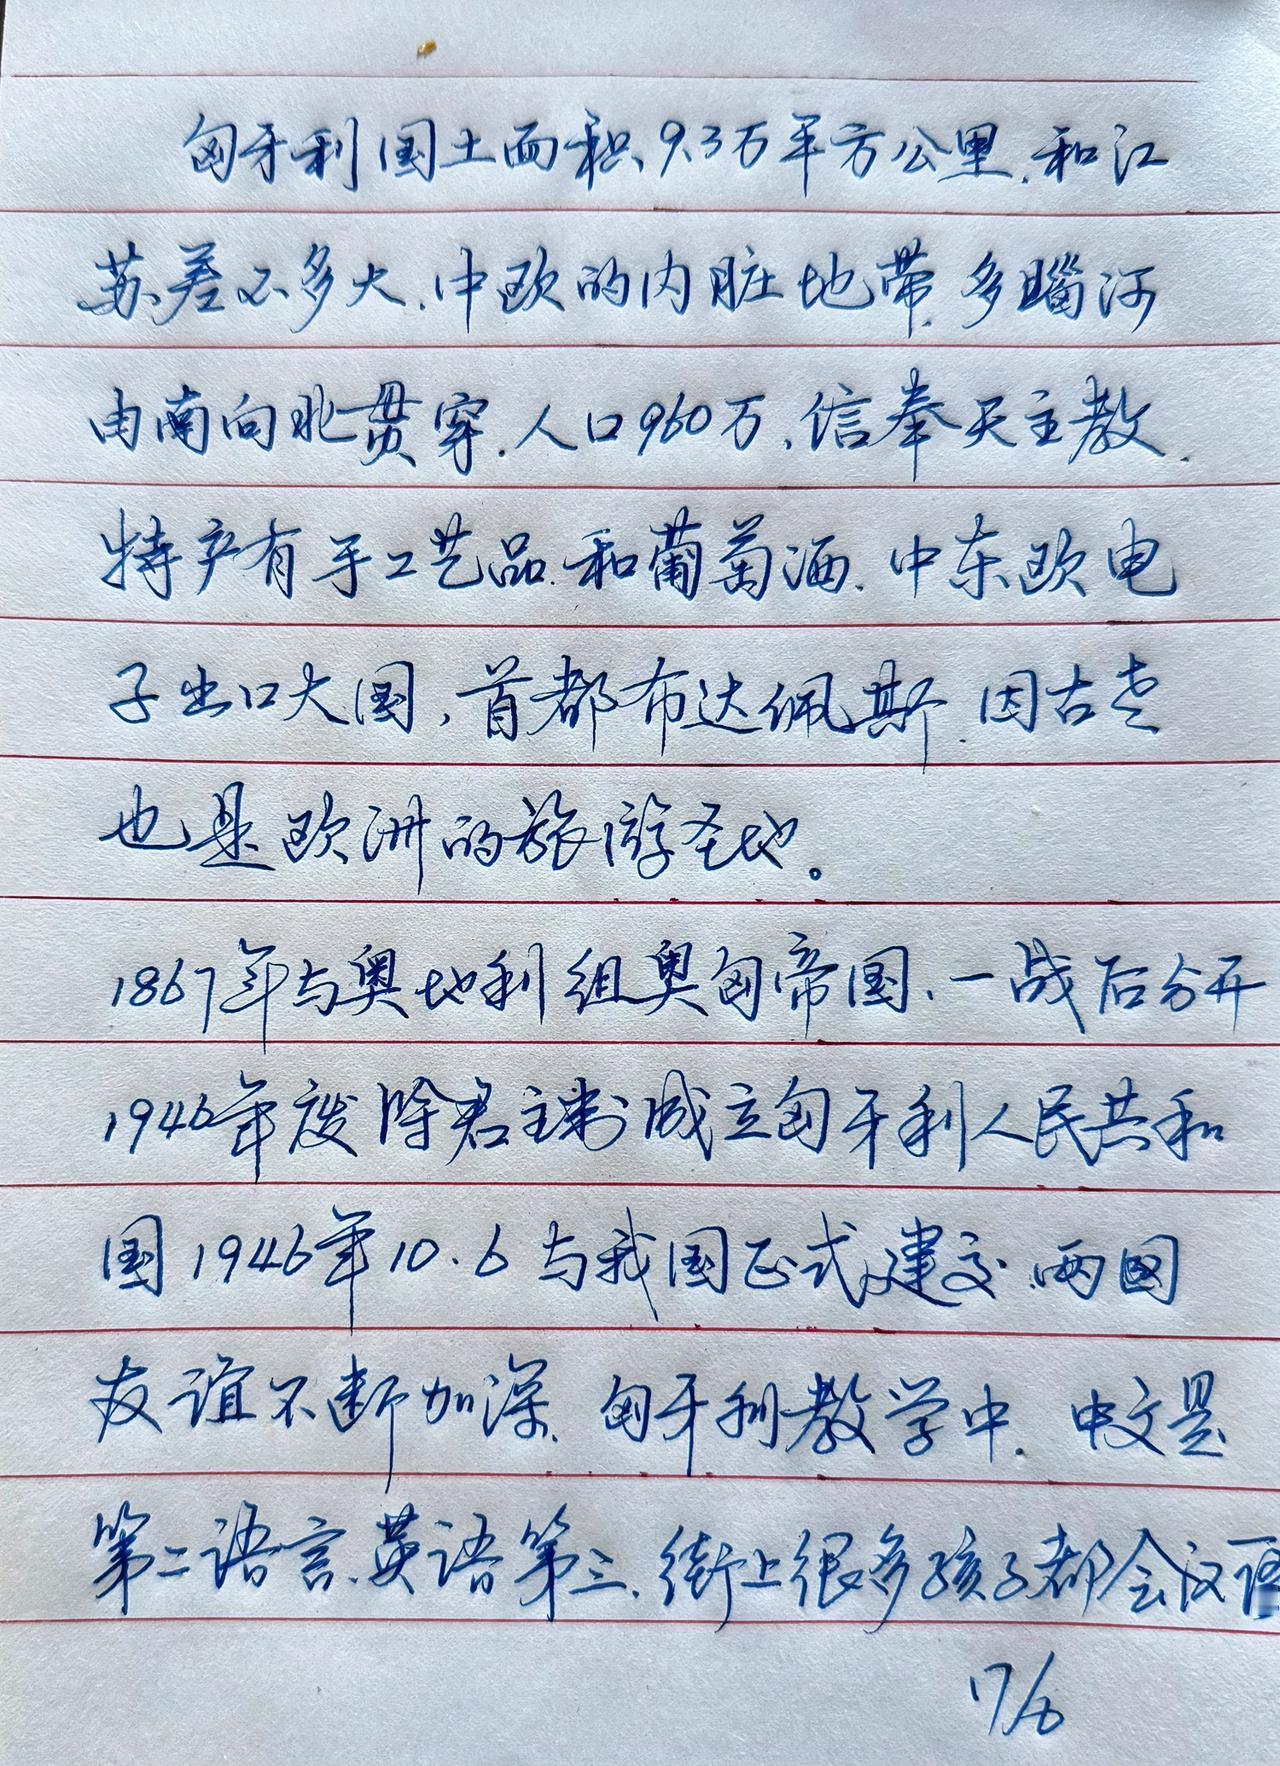 匈牙利国土面积9.3万平方公里.和江
苏差不多大.中欧的内脏地带.多瑙河
由南向北贯穿.人口960万.信奉天主教.
特产有手工艺品.和葡萄酒.中东欧电
子出口大国,首都布达佩斯.因古老
也是欧洲的旅游圣地。
1867年与奥地利组奥匈帝国、一战后分开
1946年废除君主制成立匈牙利人民共和
国1946年10.6与我国正式建交.两国
友谊不断加深.匈牙利教学中.中文是
第二语言.英语第三.街上很多孩子都会汉语
17/6